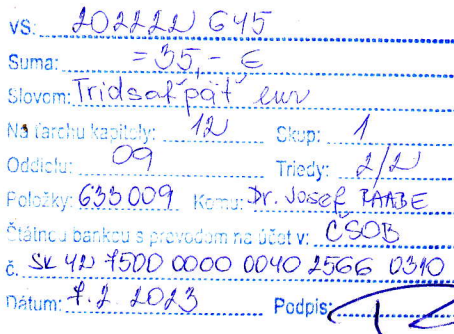 VS: 202222 645
Suma: =35,- €
Slovom: Tridsaťpäť eur
Na ťarchu kapitoly: 12 Skup: 1
Oddielu: 09 Triedy: 2/2
Položky: 633 009 Komu: Dr. Josef RAABE
Štátnou bankou s prevodom na účet v: ČSOB
č. SK 42 7500 0000 0040 2566 0310
Dátum: 7.2.2023 Podpis: